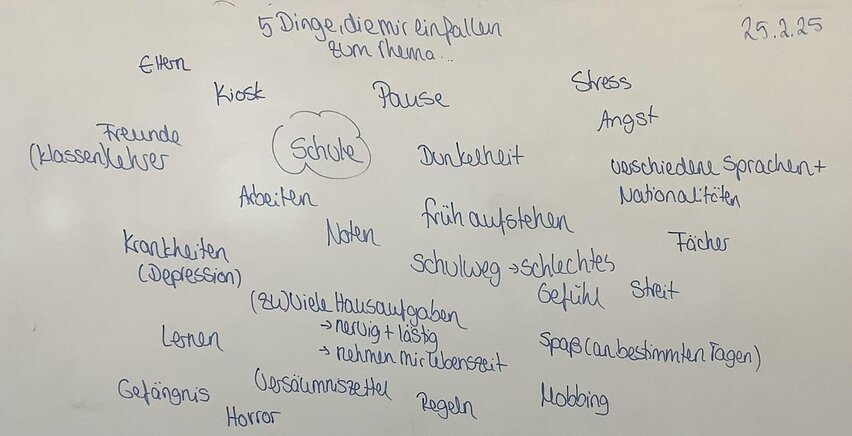 5 Dinge, die mir einfallen
zum Thema...
25.2.25
Eltern
Kiosk
Pause
Stress
Angst
Freunde
(Klassen)Lehrer
Schule
Dunkelheit
verschiedene Sprachen +
Nationalitäten
Arbeiten
früh aufstehen
Noten
Fächer
Krankheiten
(Depression)
Schulweg → schlechtes
Gefühl
Streit
(zu) viele Hausaufgaben
→ nervig + lästig
→ nehmen mir Lebenszeit
Lernen
Spaß (an bestimmten Tagen)
Gefängnis
Versäumniszettel
Regeln
Mobbing
Horror